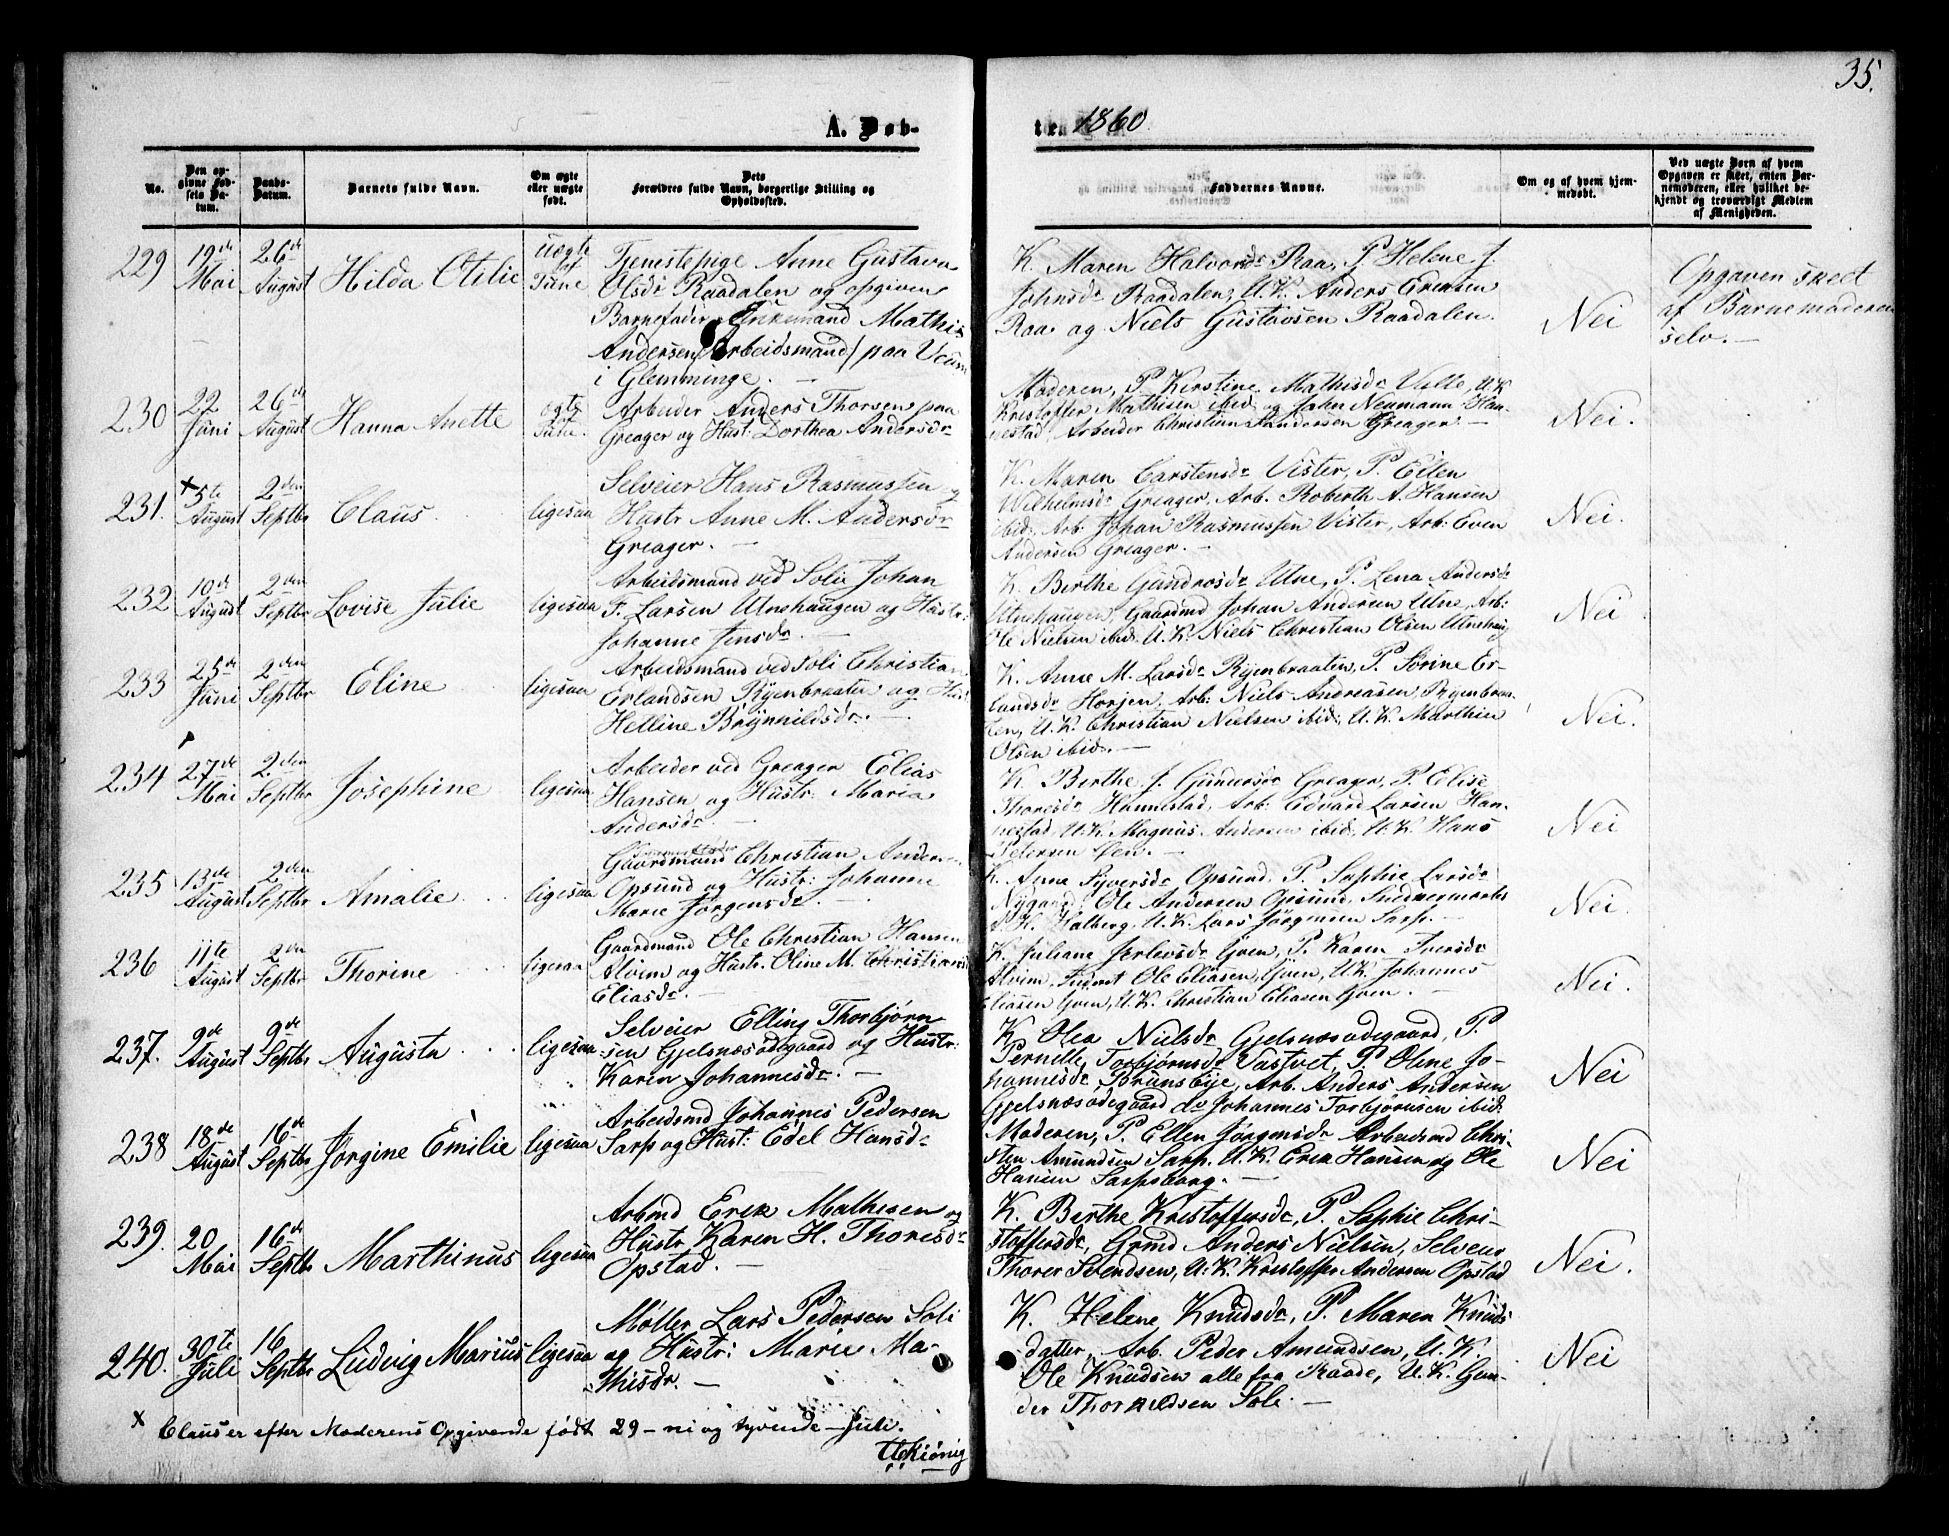 35.
A. Døb-
te. 1860.
No.
Den op-
givne Fød-
sels Da-
tum.
Daabs-
Datum.
Barnets fulde Navn.
Om ægte
eller uægte
født.
Dets
Forældres fulde Navn, borgerlige Stilling og
Opholdssted.
Faddernes Navne.
Om og af hvem hjem-
medøbt.
Ved uægte Børn af hvem
Opgaven er skeet, enten Bar-
nemoderen, eller hvilket be-
kjendt og troværdigt Medlem
af Menigheden.
229
19de
Mai
26de
August
Hilda Otilie
Uægte
Tune
Tjenestepige Anne Gustava
Olsdr Raadalen og opgiven
Barnefader Enkemand Mathis
Andersen (Arbeidsmand) paa
i Glemminge. —
K. Maren Halvorsdr Raa, P. Helene J.
Johnsdr Raadalen, U.K. Anders Erensen
Raa og Niels Gustavsen Raadalen.
Nei
Opgaven skeet
af Barnemoderen
selv. —
230
22
Juni
26de
August
Hanna Anette
ægte
Tune.
Arbeider Anders Thorsen paa
Greager og Hust: Dorthea Andersdr
Moderen, P. Kirstine Mathisdr Valle, U.K
Kristoffer Mathisen ibid og John Neumann Han-
nestad, Arbeider Christian Andersen Greager. —
Nei.
231.
× 5te
August
2den
Septbr
Claus.
ligesaa
Selveier Hans Rasmussen og
Hustr Anne M. Andersdr
Greager. —
K. Maren Carstensdr Vister, P. Ellen
Wilhelmsdr Greager, Arb. Roberth A. Hansen
ibid, Arb. Johan Rasmussen Vister, Arb: Even
Andersen Greager. —
Nei.
232
10de
August
2den
Septbr
Lovise Julie
ligesaa
Arbeidsmand ved Solie Johan
F. Larsen Utnehaugen og Hustr:
Johanne Jensdr. —
K. Berthe Gundrosdr Utne, P. Lena Andersdr
Utnehaugen, Gaardmd Johan Andersen Utne, Arb:
Ole Nielsen ibid. U.K. Niels Christian Olsen Utnehaug
Nei
233
25de
Juni
2den
Septbr
Eline
ligesaa
Arbeidsmand ved Soli Christian
Erlandsen Ryenbraaten og Hust
Helline Brynnildsdr. —
K. Anne M. Larsdr Ryenbraaten, P. Sorine Er-
landsdr Horjen, Arb: Niels Andreasen Ryenbraa-
ten, U.K. Christian Nielsen ibid, U.K. Marthin
Olsen ibid. —
Nei.
234
27de
Mai
2den
Septbr
Josephine
ligesaa
Arbeider ved Greager Elias
Hansen og Hustr: Maria
Andersdr. —
K. Berthe J. Gunersdr Greager, P. Elise
Thoresdr Hannestad, Arb: Edvard Larsen Han-
nestad, U.K. Magnus Andersen ibid, U.K. Hans
Petersen Øen. —
Nei
235
13de
August
2den
Septbr
Amalie
ligesaa
Gaardmand Christian Ander-
Opsund og Hustr: Johanne
Marie Jørgensdr. —
K. Anne Syversdr Opsund, P. Sophie Larsdr
Nygaard, Ole Andersen Opsund,
H. Halberg, U.K. Lars Jørgensen Sarp. —
Nei.
236
11te
August
2den
Septbr
Thorine
ligesaa
Gaardmand Ole Christian Hansen
Alvim og Hustr. Oline M. Christiane
Eliasdr. —
K. Juliane Jerlevsdr Gven, P. Karen Iversdr
Alvim, Ole Eliasen Gven, U.K. Johannes
Eliasen Gven, U.K. Christian Eliasen Gven. —
Nei.
237.
9de
August
9de
Septbr
Augusta
ligesaa
Selveier Elling Thorbjørn
-sen Gjelsnæsødegaard og Hustr:
Karen Johannesdr. —
K. Olea Nielsdr Gjelsnæsødegaard, P.
Pernille Torbjørnsdr Tastvet, P. Oline Jo-
hannesdr BrunsEie, Arb. Anders Andersen
Gjelsnæsødegaard do Johannes Torbjørnsen ibid.
Nei
238
18de
August
16de
Septbr
Jørgine Emilie
ligesaa
Arbeidsmd Johannes Pedersen
Sarp og Hust: Edel Hansdr
Moderen, P. Ellen Jørgensdr Arbeidsmd Chri-
sten Amundsen Sarp. U.K. Erik Hansen og Ole
Hansen Sarpsborg. —
Nei
239.
20
Mai
16de
Septbr
Marthinus
ligesaa
Arbmd Erik Mathisen og
Hustr Karen H. Thoresdr
Opstad. —
K. Berthe Kristoffersdr, P. Sophie Chri-
stoffersdr, Grmd Anders Nielsen, Selveier
Thorer Svendsen, U.K. Kristoffer Andersen Opstad
Nei.
240.
30te
Juli
16
Septbr
Ludvig Marius
ligesaa
Møller Lars Pedersen Soli
og Hustr: Marie Ma-
thisdr. —
K. Helene Knudsdr, P. Maren Knuds-
datter, Arb. Peder Amundsen, U.K.
Ole Knudsen alle fra Raade, U.K. Gun-
der Thorkildsen Soli. —
Nei
× Claus er efter Moderens Opgivende født 29 – ni og tyvende – Juli.